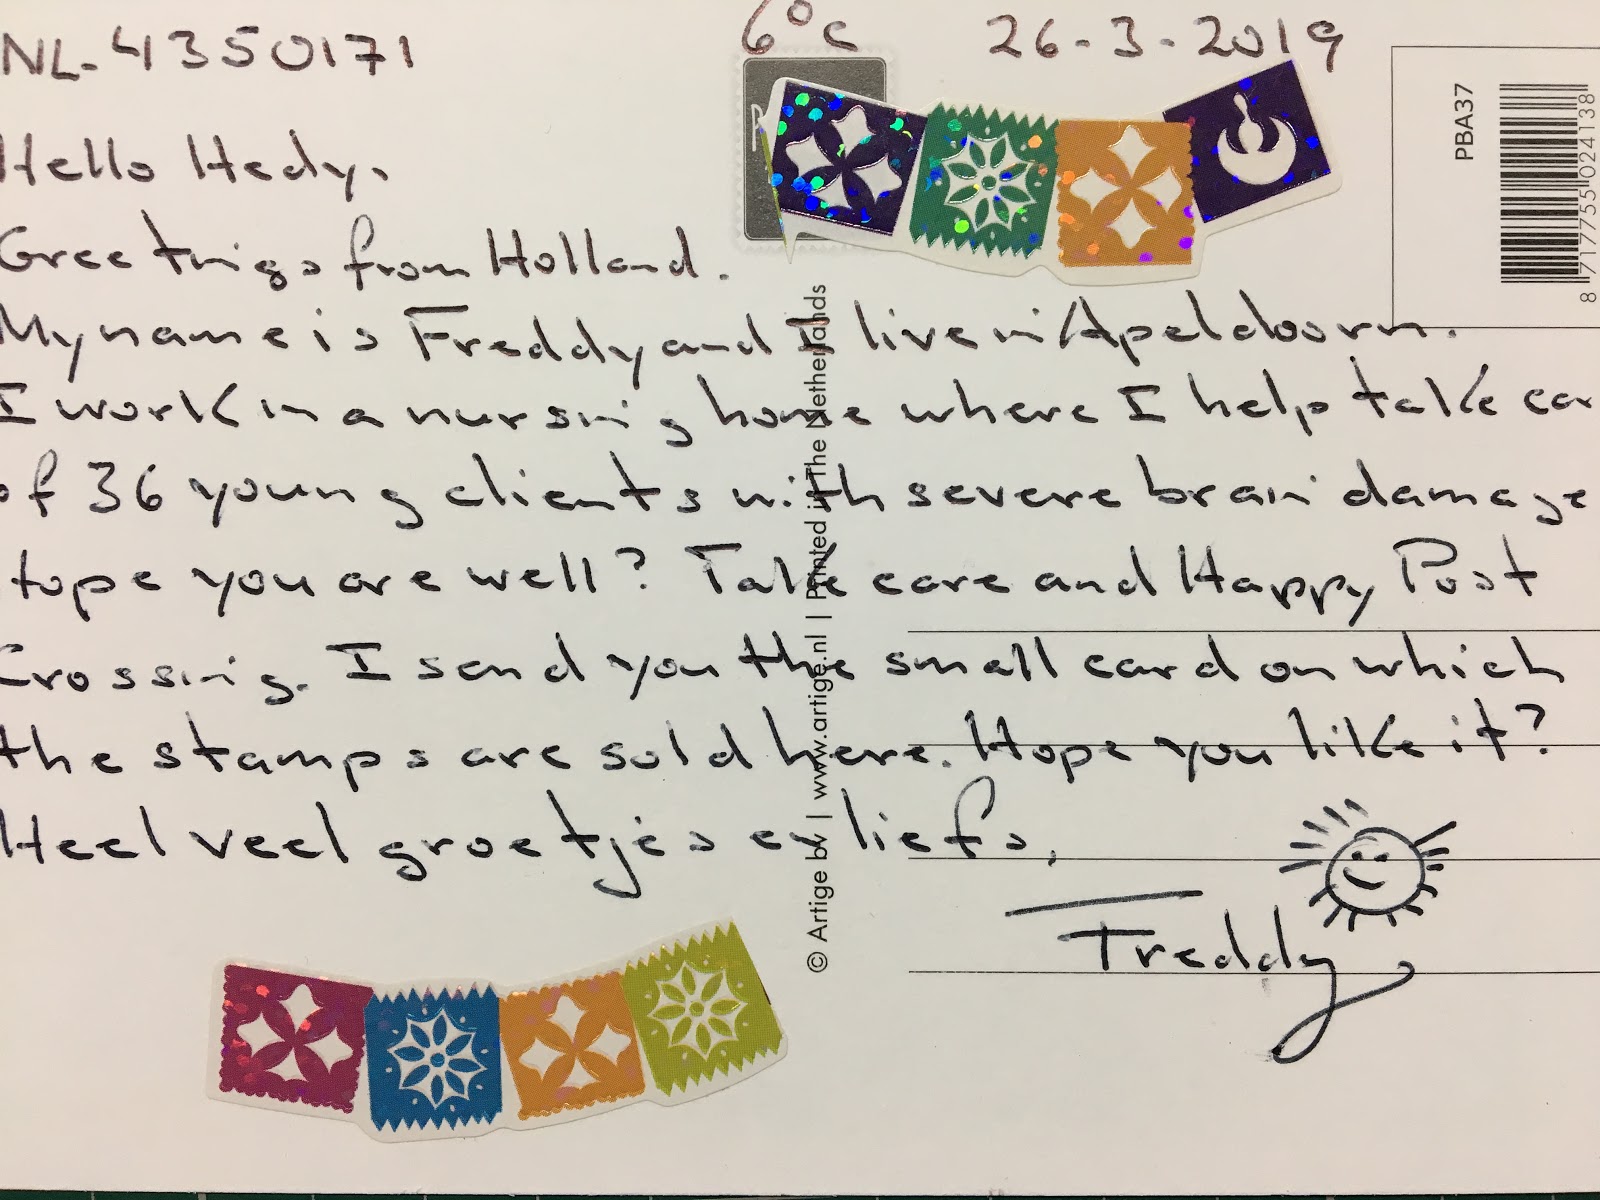 NL-4350171
6°C
26-3-2019
Hello Hedy,
Greetings from Holland.
My name is Freddy and I live in Apeldoorn.
I work in a nursing home where I help take car
of 36 young clients with severe brain damage
Hope you are well? Take care and Happy Post
Crossing. I send you the small card on which
the stamps are sold here. Hope you like it?
Heel veel groetjes en liefs,
Freddy
© Artige bv | www.artige.nl | Printed in The Netherlands
PBA37
8 717755 024138